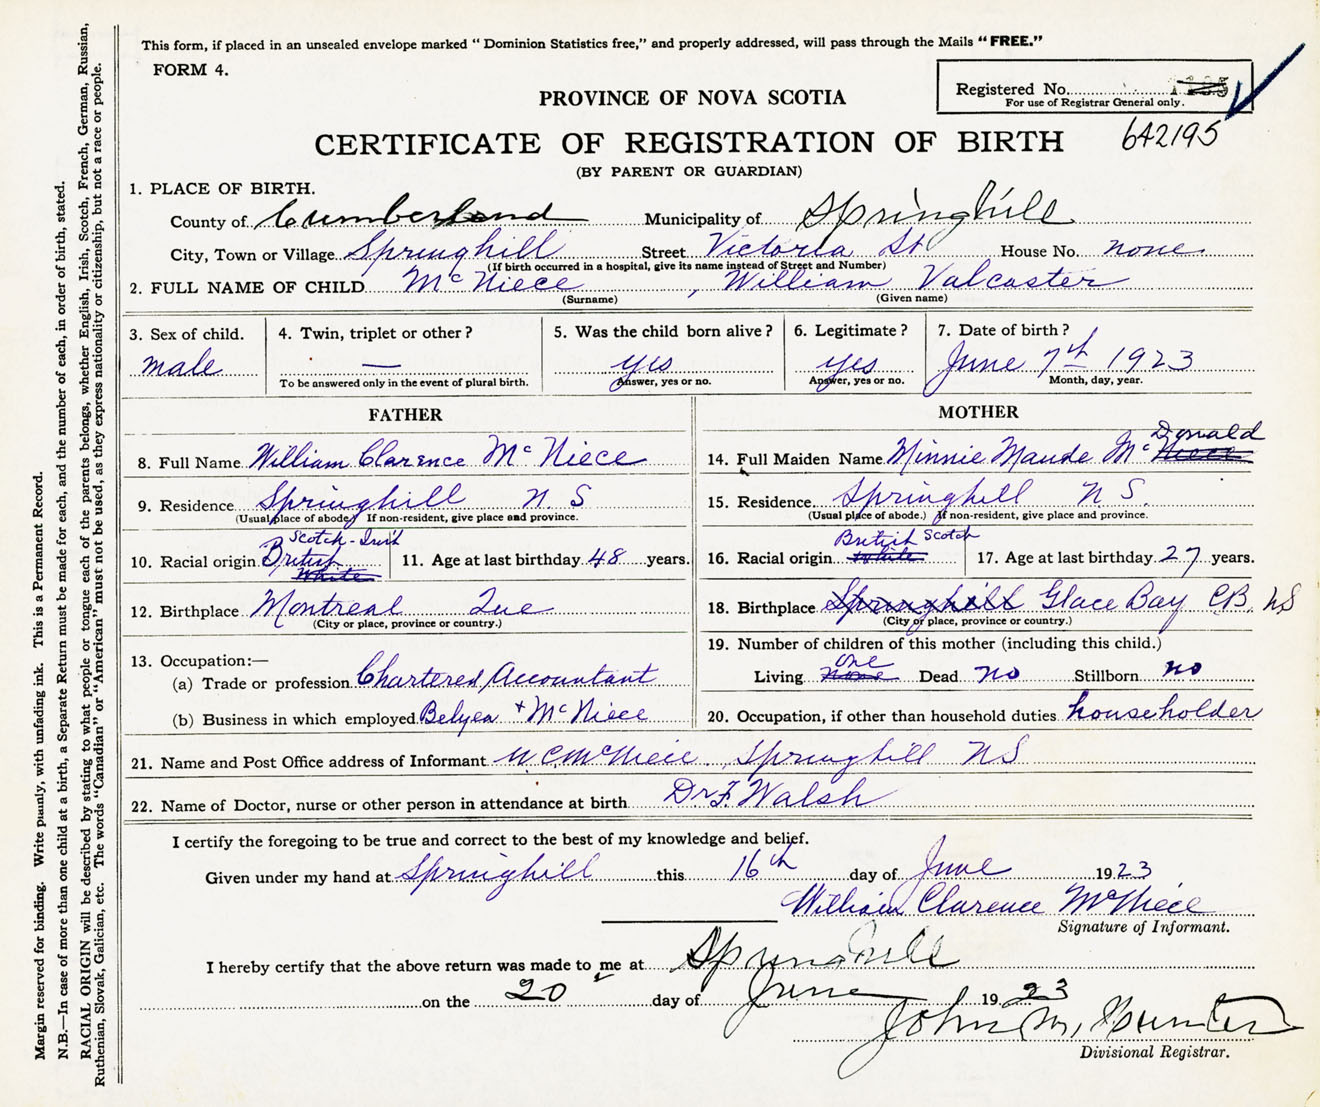 This form, if placed in an unsealed envelope marked “ Dominion Statistics free,” and properly addressed, will pass through the Mails “ FREE.”
FORM 4.
Registered No.
For use of Registrar General only.
PROVINCE OF NOVA SCOTIA
642195
CERTIFICATE OF REGISTRATION OF BIRTH
(BY PARENT OR GUARDIAN)
1. PLACE OF BIRTH.
County of Cumberland Municipality of Springhill
City, Town or Village Springhill Street Victoria St House No. none
(If birth occurred in a hospital, give its name instead of Street and Number)
2. FULL NAME OF CHILD McNiece, William Valcaster
(Surname) (Given name)
3. Sex of child. 4. Twin, triplet or other? 5. Was the child born alive? 6. Legitimate? 7. Date of birth?
male — yes yes June 7th 1923
To be answered only in the event of plural birth. Answer, yes or no. Answer, yes or no. Month, day, year.
FATHER
8. Full Name William Clarence McNiece
9. Residence Springhill N.S
(Usual place of abode.) If non-resident, give place and province.
Scotch-Irish
10. Racial origin British 11. Age at last birthday 48 years.
White
12. Birthplace Montreal Que
(City or place, province or country.)
13. Occupation:—
(a) Trade or profession Chartered Accountant
(b) Business in which employed Belyea + McNiece
MOTHER
Donald
14. Full Maiden Name Minnie Maude Mc Niece
15. Residence Springhill N.S.
(Usual place of abode.) If non-resident, give place and province.
British Scotch
16. Racial origin White 17. Age at last birthday 27 years.
18. Birthplace Springhill Glace Bay C.B. NS
(City or place, province or country.)
19. Number of children of this mother (including this child.)
one
Living none Dead no Stillborn no
20. Occupation, if other than household duties householder
21. Name and Post Office address of Informant W C McNiece, Springhill NS
22. Name of Doctor, nurse or other person in attendance at birth Dr F. Walsh
I certify the foregoing to be true and correct to the best of my knowledge and belief.
Given under my hand at Springhill this 16th day of June 1923
William Clarence McNiece
Signature of Informant.
I hereby certify that the above return was made to me at Springhill
on the 20 day of June 1923
John M. Hunter
Divisional Registrar.
Margin reserved for binding. Write plainly, with unfading ink. This is a Permanent Record.
N.B.—In case of more than one child at a birth, a Separate Return must be made for each, and the number of each, in order of birth, stated.
RACIAL ORIGIN will be described by stating to what people or tongue each of the parents belongs, whether English, Irish, Scotch, French, German, Russian,
Ruthenian, Slovak, Galician, etc. The words “Canadian” or “American” must not be used, as they express nationality or citizenship, but not a race or people.